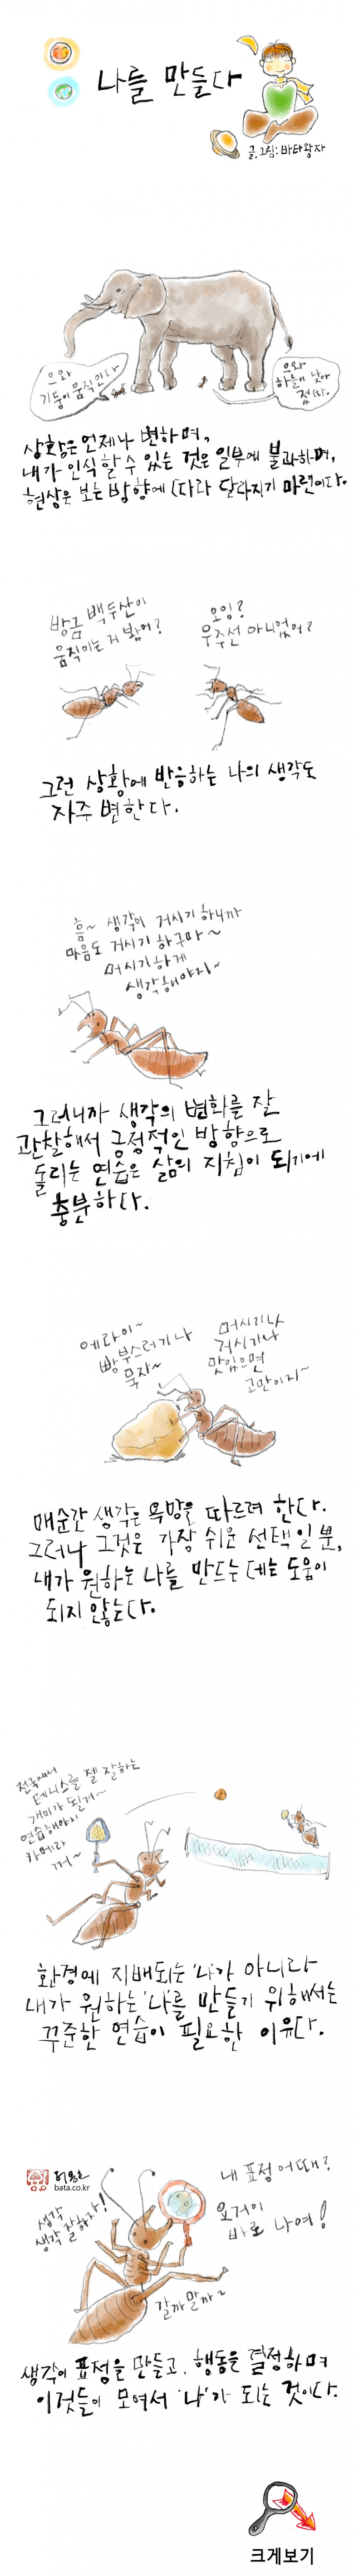 나를 만들다
글,그림:바타왕자
으와
기둥이 움직인다
으와
하늘이 낮아
졌다.
상황은 언제나 변하며,
내가 인식할 수 있는 것은 일부에 불과하며,
현상은 보는 방향에 따라 달라지기 마련이다.
방금 백두산이
움직이는 거 봤어?
오잉?
우주선 아니었어?
그런 상황에 반응하는 나의 생각도
자주 변한다.
흠~ 생각이 거시기 하니까
마음도 거시기 하구마~
머시기하게
생각해야지~
그러니까 생각의 변화를 잘
관찰해서 긍정적인 방향으로
돌리는 연습은 삶의 지침이 되기에
충분하다.
에라이~
빵 부스러기나
묵자~
머시기나
거시기나
맛있으면
고만이지~
매순간 생각은 욕망을 따르려 한다.
그러나 그것은 가장 쉬운 선택일 뿐,
내가 원하는 나를 만드는 데는 도움이
되지 않는다.
전국에서
테니스를 젤 잘하는
개미가 될거~
연습해야지
카메라
꺼~
환경에 지배되는 '나'가 아니라
내가 원하는 '나'를 만들기 위해서는
꾸준한 연습이 필요한 이유다.
bata.co.kr
생각
생각 잘하자!
내 표정 어때?
요거이
바로 나여!
갈까 말까~
생각이 표정을 만들고, 행동을 결정하며
이것들이 모여서 '나'가 되는 것이다.
크게보기